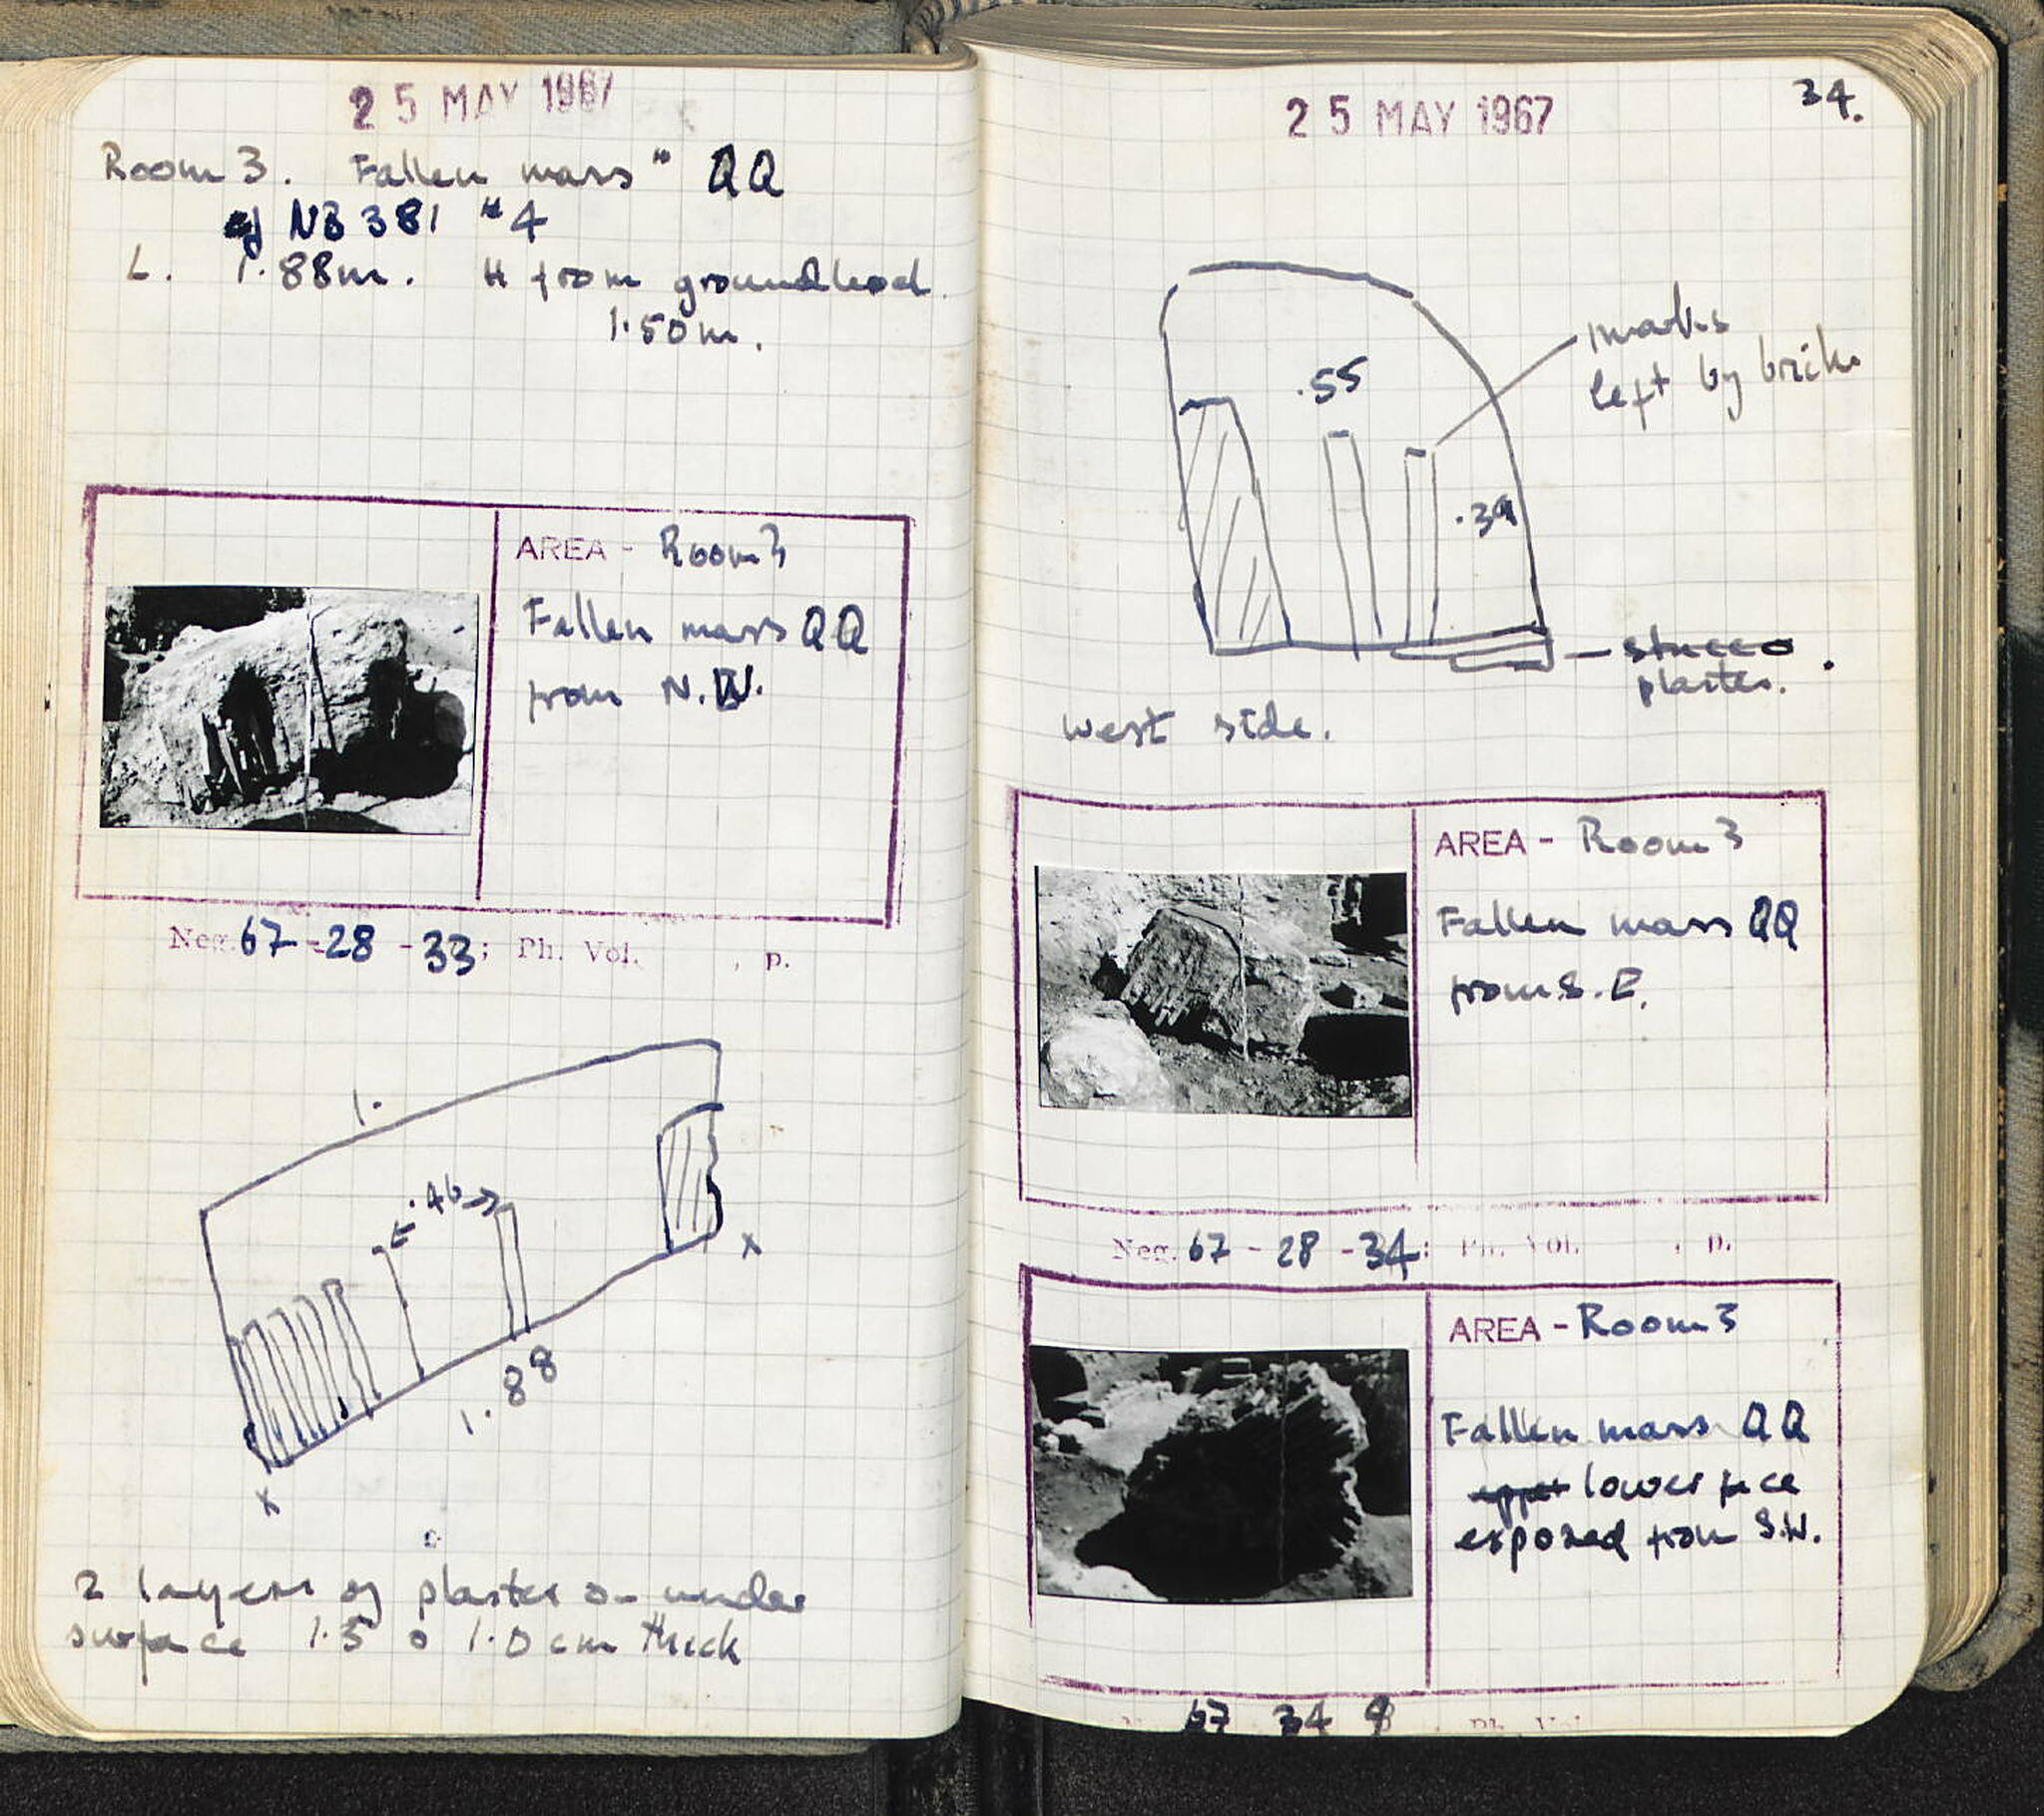 25 MAY 1967
Room 3. Fallen mass" QQ
cf NB 381 #4
L. 1.88m. H from groundlevel.
1.50m.
AREA - Room 3
Fallen mass QQ
from N.W.
Neg. 67-28-33; Ph. Vol. , p.
1.
.46
x
1.88
x
2 layers of plaster on under
surface 1.5 & 1.0 cm thick
25 MAY 1967
34.
marks
left by brick
.55
.39
stucco
plaster.
west side.
AREA - Room 3
Fallen mass QQ
from S.E.
Neg. 67-28-34; Ph. Vol. , p.
AREA - Room 3
Fallen mass QQ
upper lower face
exposed from S.W.
67 34